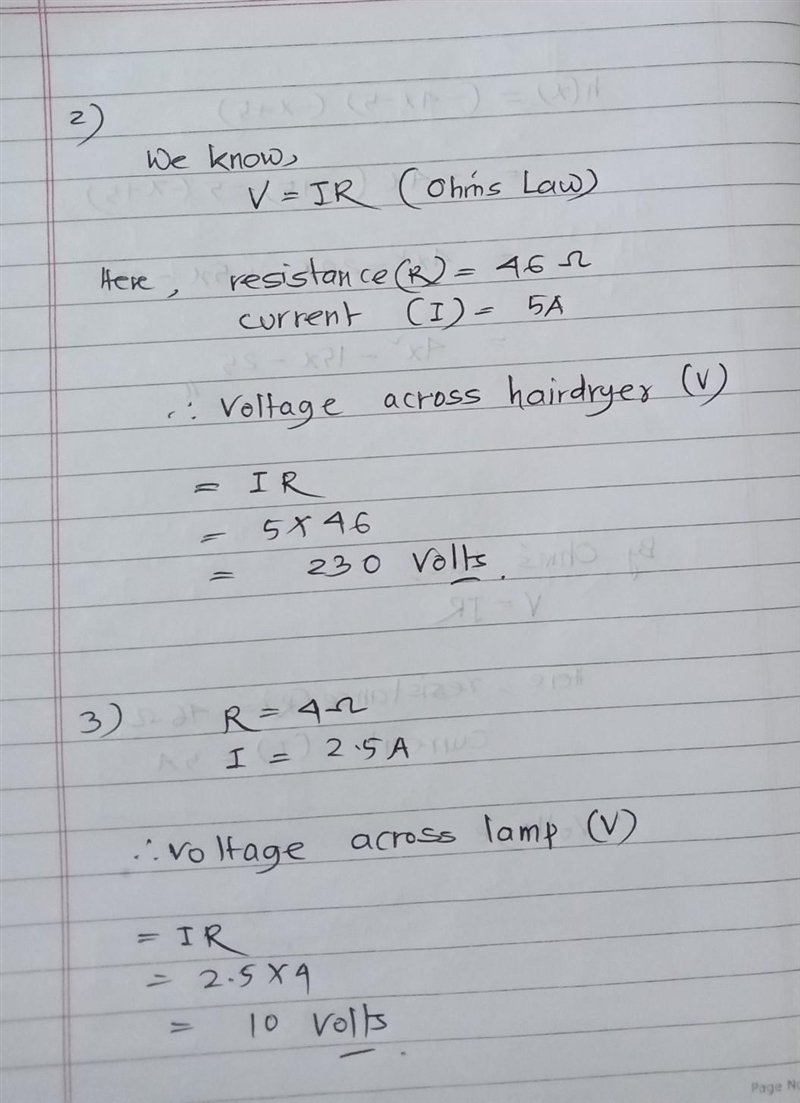 2)
We know,
V = IR (Ohm's Law)
Here, resistance (R) = 46 Ω
current (I) = 5A
∴ Voltage across hairdryer (V)
= IR
= 5 × 46
= 230 Volts.
3) R = 4Ω
I = 2.5A
∴ voltage across lamp (V)
= IR
= 2.5 × 4
= 10 Volts.
Page No